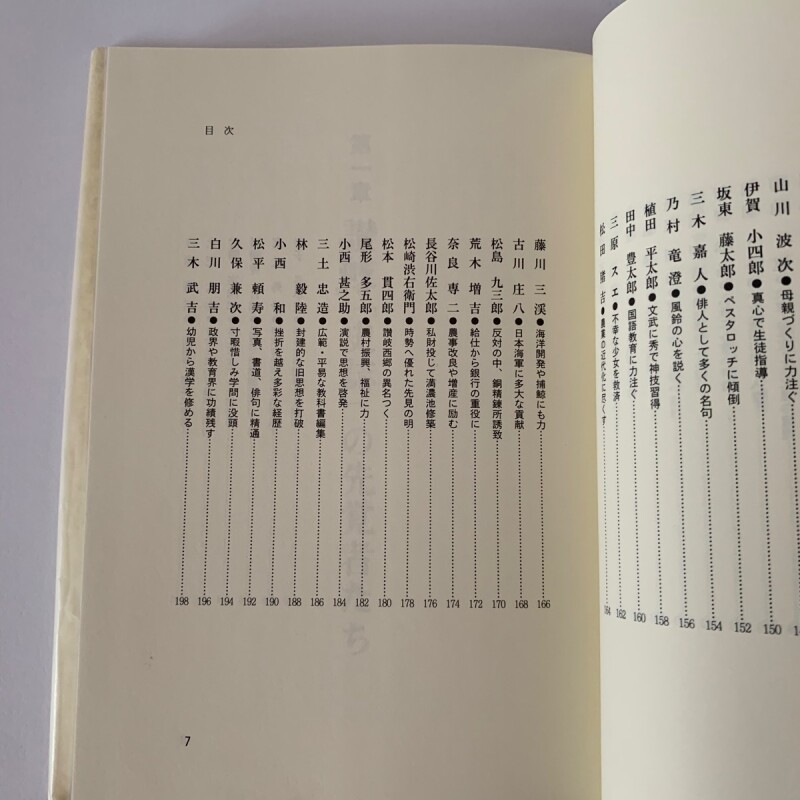 山川 波次●母親づくりに力注ぐ
伊賀 小四郎●真心で生徒指導……150
坂東 藤太郎●ペスタロッチに傾倒……152
三木 嘉人●俳人として多くの名句……154
乃村 竜澄●風鈴の心を説く……156
植田 平太郎●文武に秀で神技習得……158
田中 豊太郎●国語教育に力注ぐ……160
三原 スエ●不幸な少女を救済……162
松田 ●農業の近代化に尽くす……164
目次
藤川 三渓●海洋開発や捕鯨にも力……166
古川 庄八●日本海軍に多大な貢献……168
松島 九三郎●反対の中、銅精錬所誘致……170
荒木 増吉●給仕から銀行の重役に……172
奈良 専二●農事改良や増産に励む……174
長谷川佐太郎●私財投じて満濃池修築……176
松崎渋右衛門●時勢へ優れた先見の明……178
松本 貫四郎●讃岐西郷の異名つく……180
尾形 多五郎●農村振興、福祉に力……182
小西 甚之助●演説で思想を啓発……184
三土 忠造●広範・平易な教科書編集……186
林 毅陸●封建的な旧思想を打破……188
小西 和●挫折を越え多彩な経歴……190
松平 頼寿●写真、書道、俳句に精通……192
久保 兼次●寸暇惜しみ学問に没頭……194
白川 朋吉●政界や教育界に功績残す……196
三木 武吉●幼児から漢学を修める……198
7